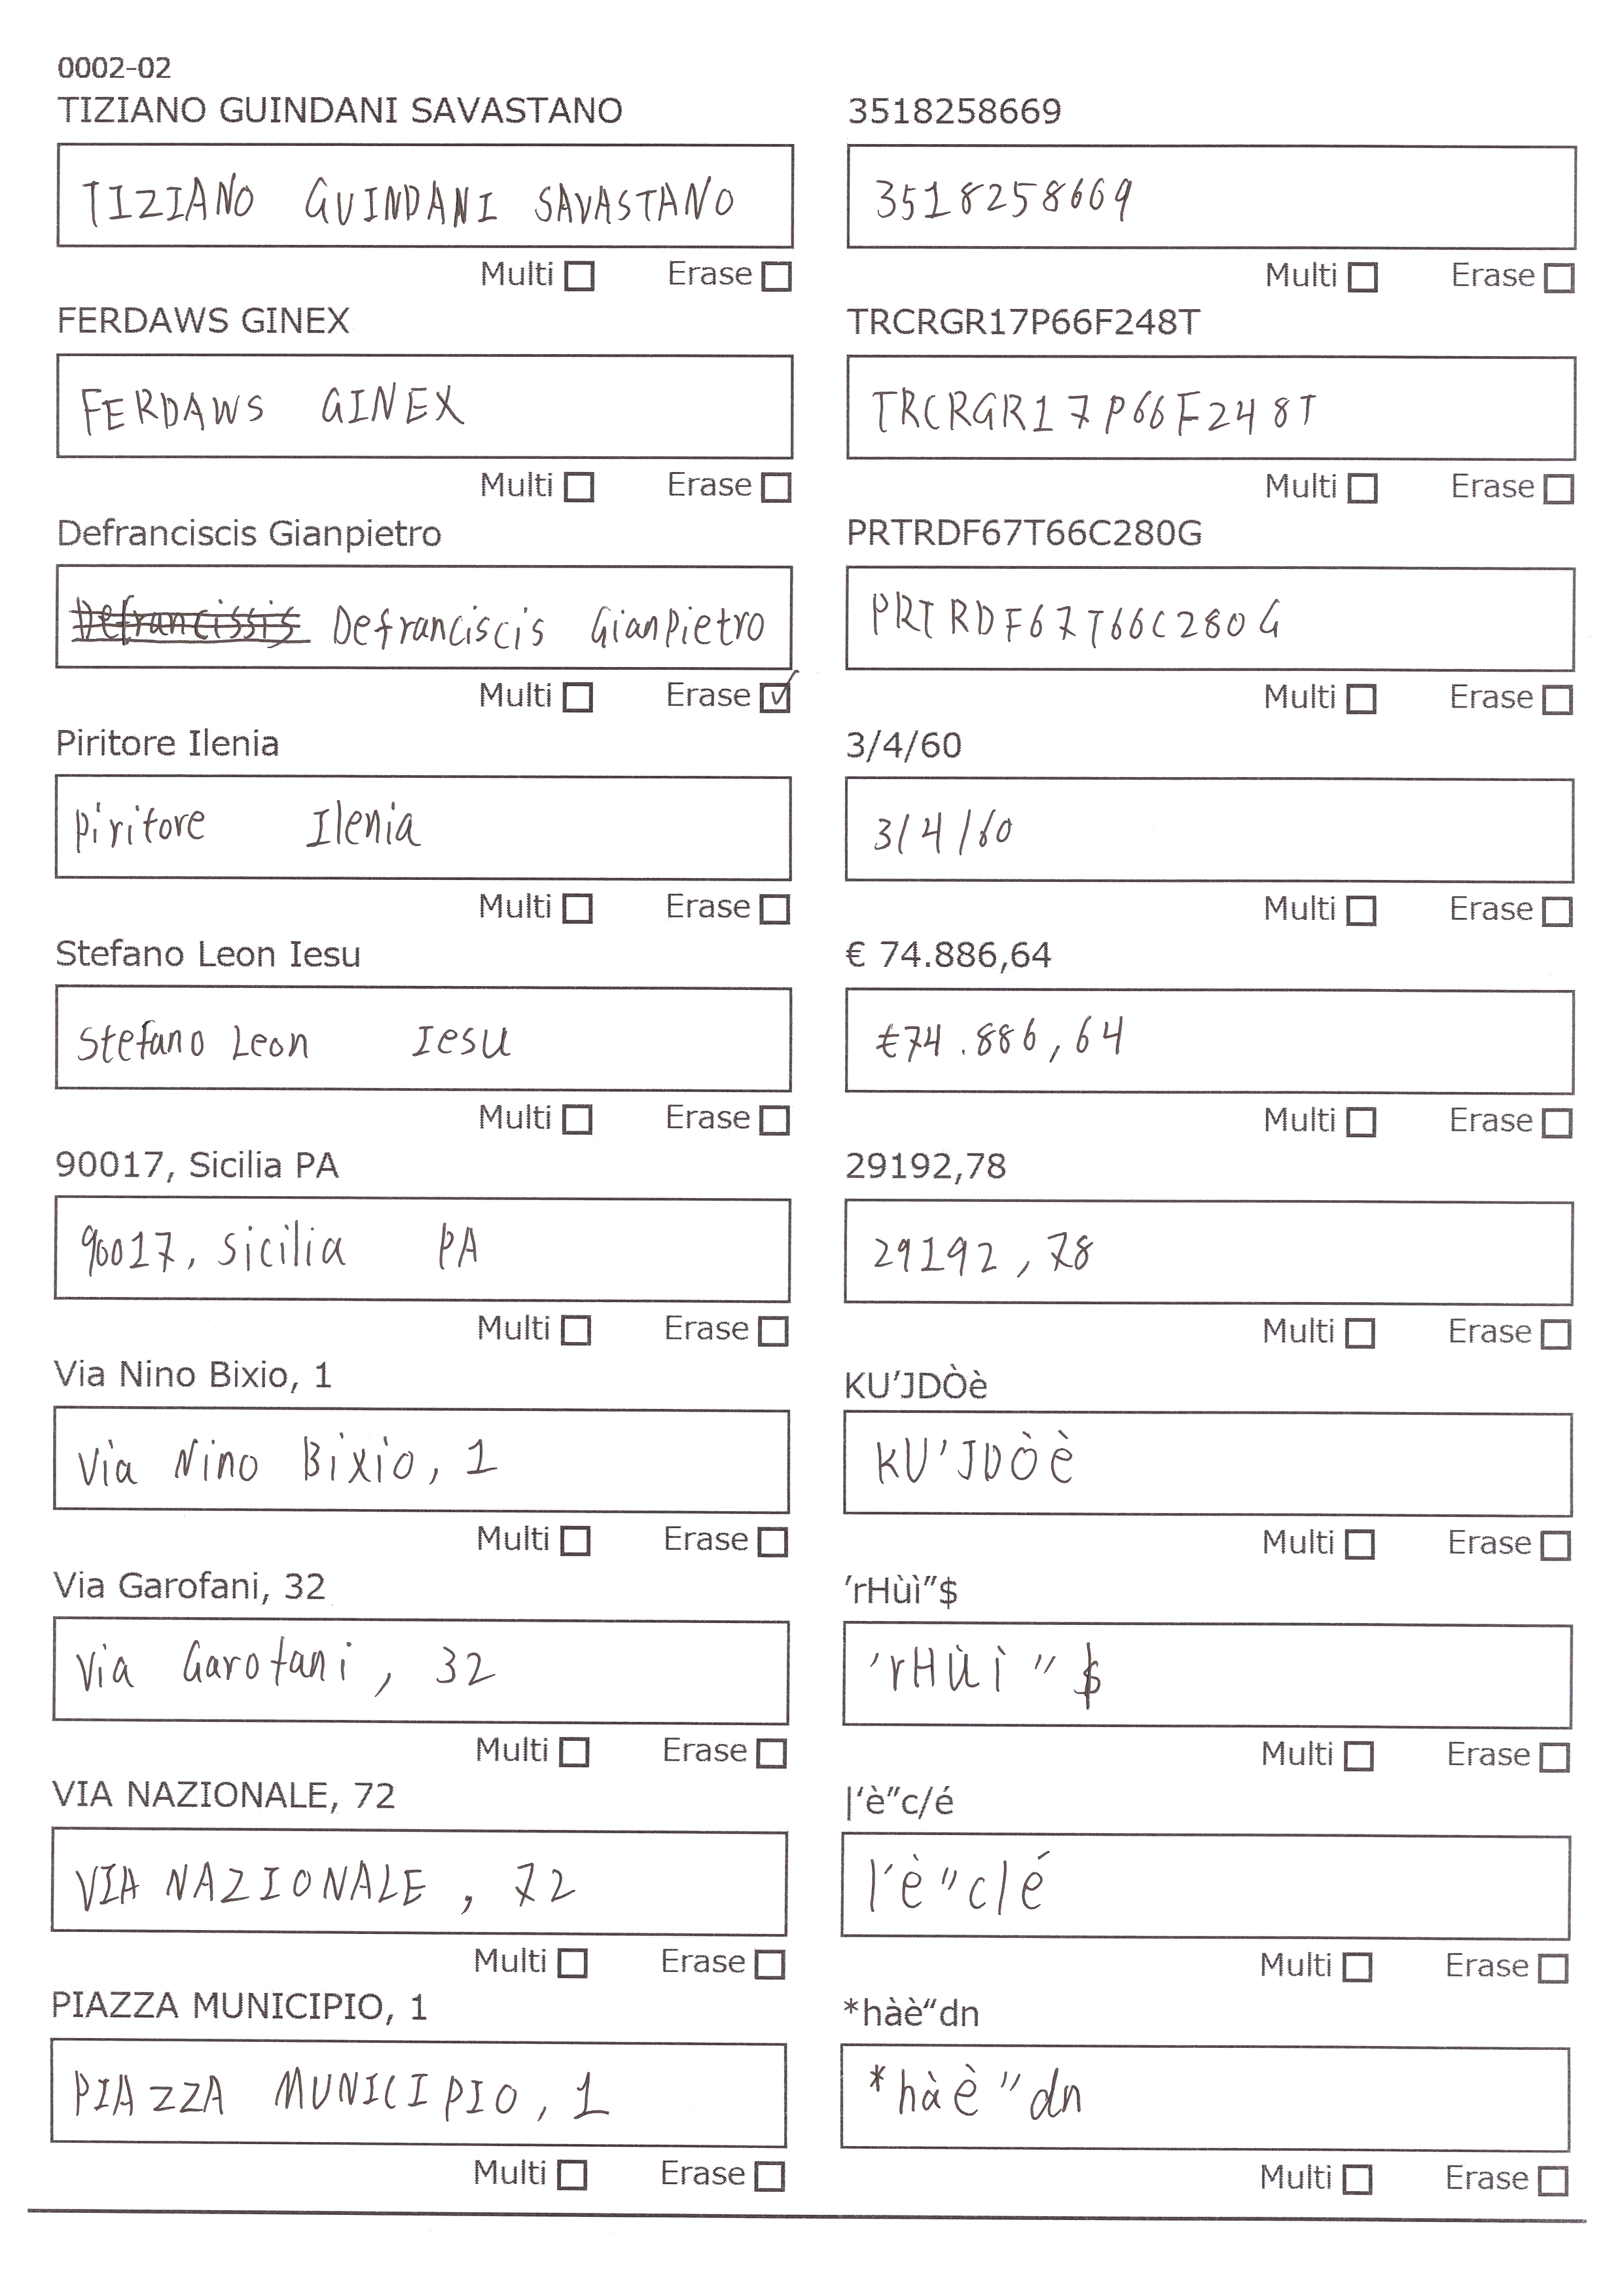 0002-02
TIZIANO GUINDANI SAVASTANO
TIZIANO GUINDANI SAVASTANO
Multi Erase
FERDAWS GINEX
FERDAWS GINEX
Multi Erase
Defranciscis Gianpietro
Defrancissis Defranciscis GianPietro
Multi Erase
Piritore Ilenia
Piritore Ilenia
Multi Erase
Stefano Leon Iesu
Stefano Leon Iesu
Multi Erase
90017, Sicilia PA
90017, Sicilia PA
Multi Erase
Via Nino Bixio, 1
Via Nino Bixio, 1
Multi Erase
Via Garofani, 32
Via Garofani, 32
Multi Erase
VIA NAZIONALE, 72
VIA NAZIONALE, 72
Multi Erase
PIAZZA MUNICIPIO, 1
PIAZZA MUNICIPIO, 1
Multi Erase
3518258669
3518258669
Multi Erase
TRCRGR17P66F248T
TRCRGR17P66F248T
Multi Erase
PRTRDF67T66C280G
PRTRDF67T66C280G
Multi Erase
3/4/60
3/4/60
Multi Erase
€ 74.886,64
€74.886,64
Multi Erase
29192,78
29192,78
Multi Erase
KU’JDÒè
KU'JDÒè
Multi Erase
’rHùì”$
'rHùì"$
Multi Erase
|‘è”c/é
|'è"c/é
Multi Erase
*hàè“dn
*hàè"dn
Multi Erase